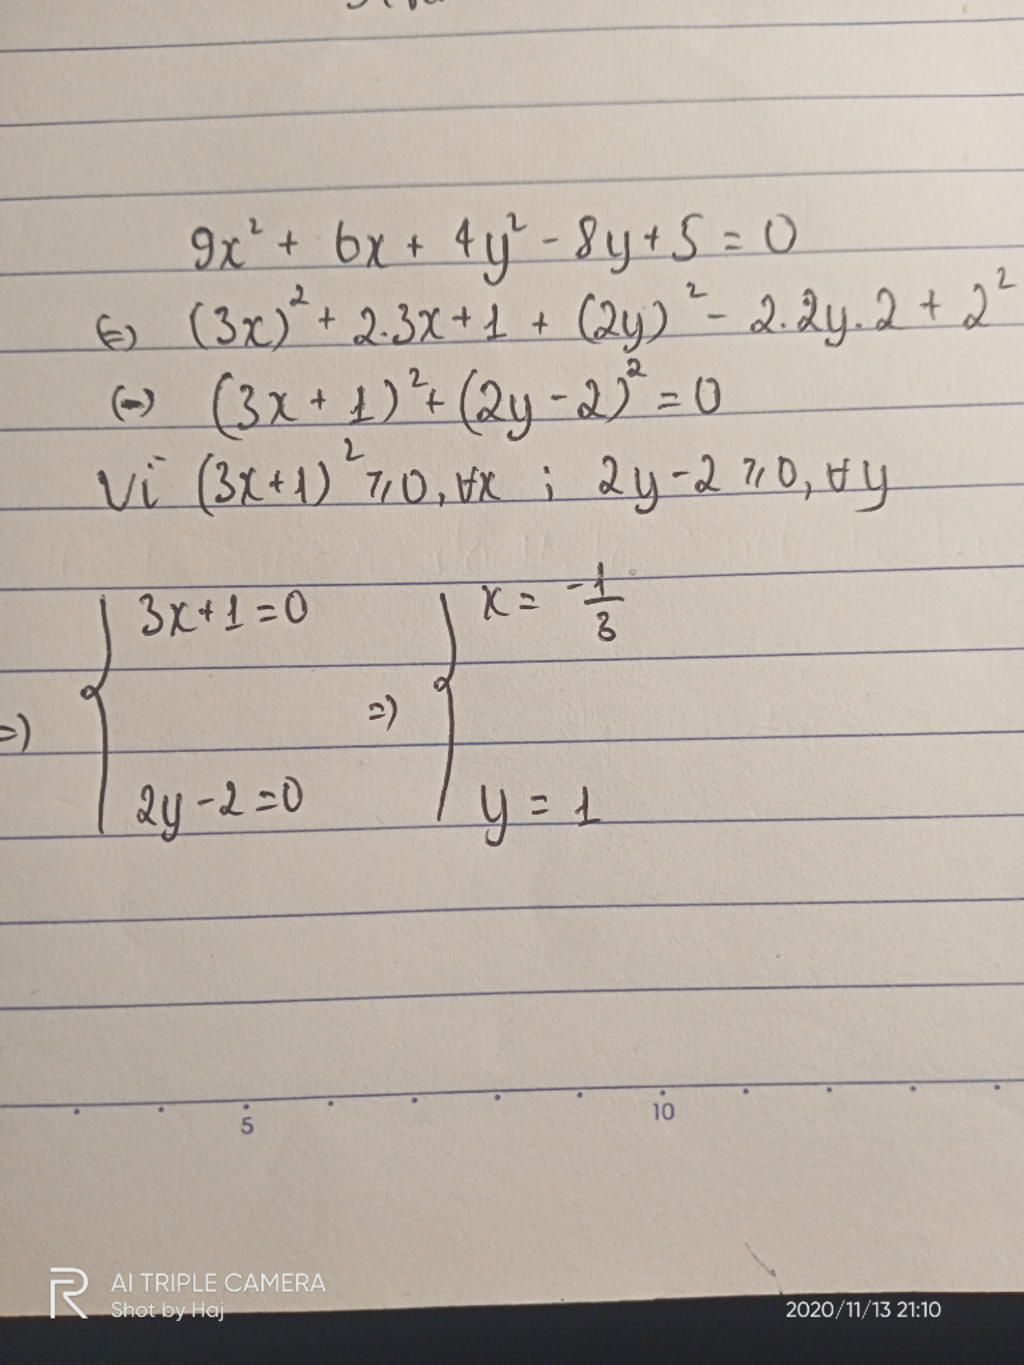 9x² + 6x + 4y² - 8y + 5 = 0
(=) (3x)² + 2.3x + 1 + (2y)² - 2.2y.2 + 2²
(=) (3x + 1)² + (2y - 2)² = 0
Vì (3x+1)² ⩾ 0, ∀x ; 2y - 2 ⩾ 0, ∀y
=) { 3x + 1 = 0 =) { x = -1/3
2y - 2 = 0 y = 1
5 10
AI TRIPLE CAMERA
Shot by Haj
2020/11/13 21:10